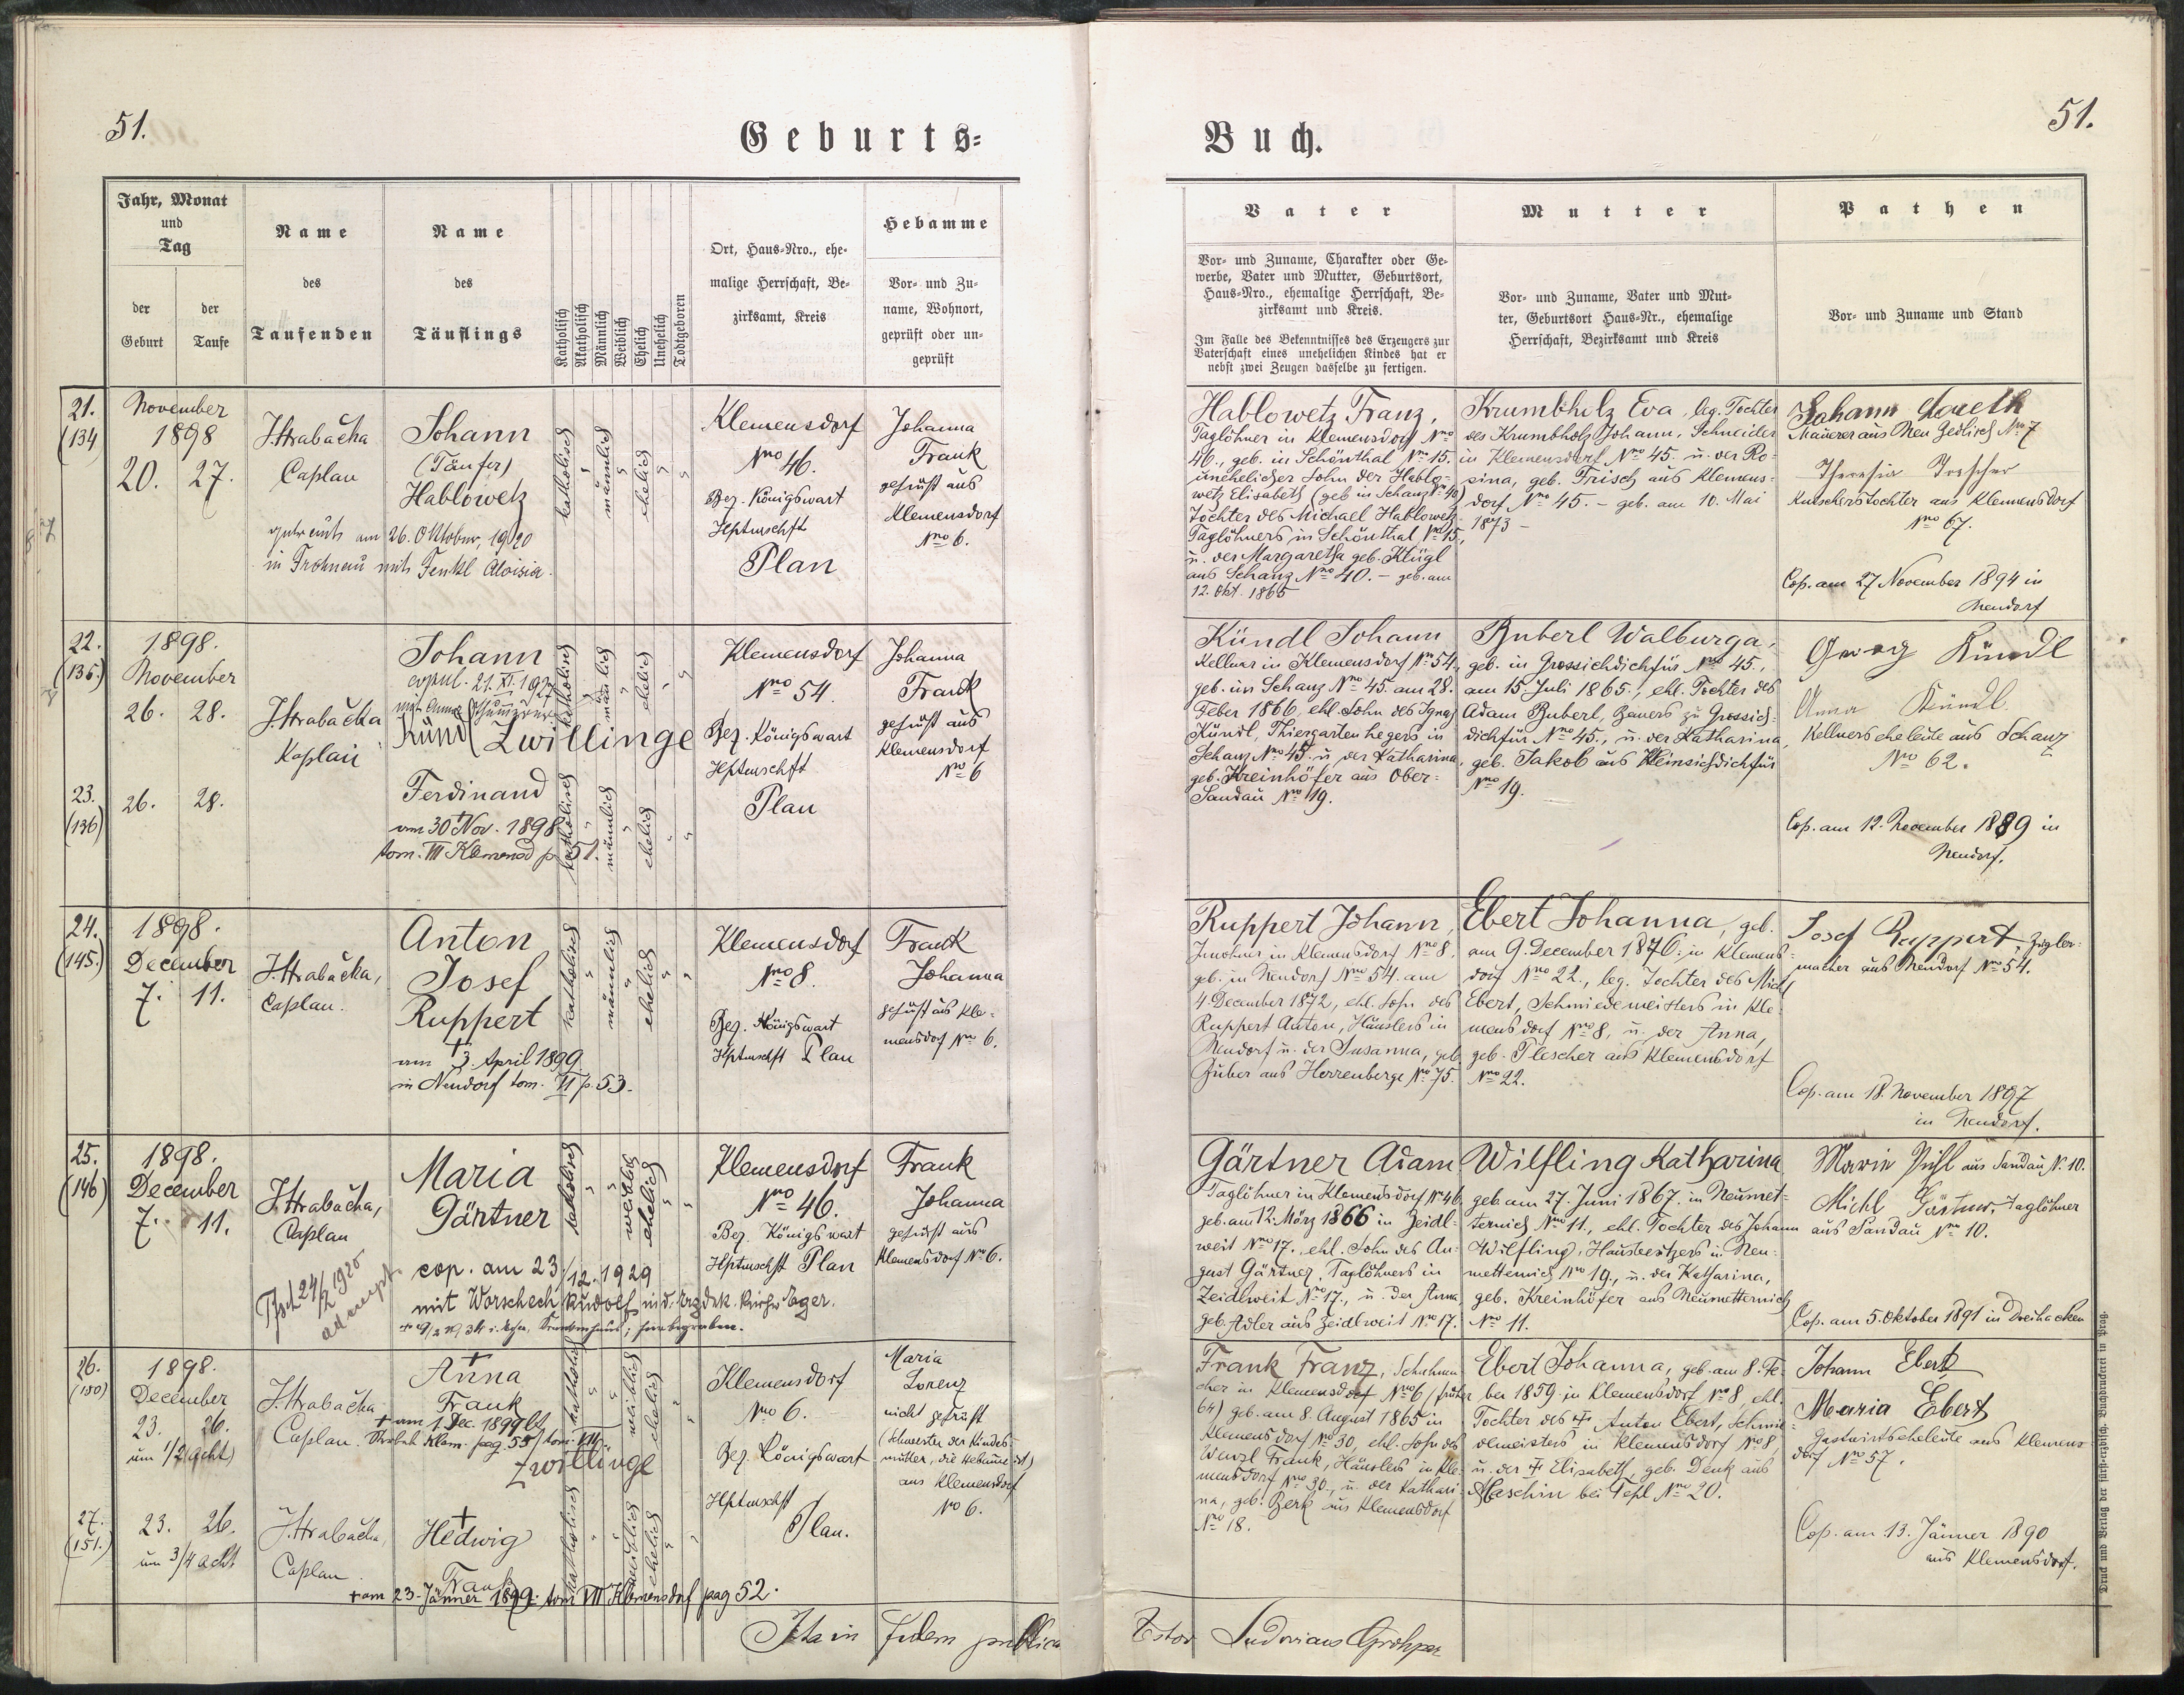 51.
Geburts-
Buch.
51.
Jahr, Monat
und
Tag
der
Geburt
der
Taufe
Name
des
Taufenden
Name
des
Täuflings
Katholisch
Akatholisch
Männlich
Weiblich
Ehelich
Unehelich
Todtgeboren
Ort, Haus-Nro., ehe-
malige Herrschaft, Be-
zirksamt, Kreis
Hebamme
Vor- und Zu-
name, Wohnort,
geprüft oder un-
geprüft
Vater
Vor- und Zuname, Charakter oder Ge-
werbe, Vater und Mutter, Geburtsort,
Haus-Nro., ehemalige Herrschaft, Be-
zirksamt und Kreis.
Im Falle des Bekenntnisses des Erzeugers zur
Vaterschaft eines unehelichen Kindes hat er
nebst zwei Zeugen dasselbe zu fertigen.
Mutter
Vor- und Zuname, Vater und Mut-
ter, Geburtsort Haus-Nr., ehemalige
Herrschaft, Bezirksamt und Kreis
Pathen
Vor- und Zuname und Stand
21.
(134
November
1898
20. 27.
J. Hrabačka
Caplan
Johann
(Täufer)
Hablowetz
am 26. Oktober, 1920
in Frohnau mit Fenkl Aloisia.
katholisch
männlich
ehelich
Klemensdorf
Nro 46.
Bez. Königswart
Hptmschft
Plan
Johanna
Frank
geprüft aus
Klemensdorf
No 6.
Hablowetz Franz,
Taglöhner in Klemensdorf Nro
46., geb. in Schönthal Nro 15.
unehelicher Sohn der Hablo-
wetz Elisabeth (geb in Schanz No 40)
Tochter des Michael Hablowetz
Taglöhners in Schönthal No 15,
u. der Margaretha geb. Klügl
aus Schanz Nro 40. – geb. am
12. Okt. 1865
Krumbholz Eva, leg. Tochter
des Krumbholz Johann, Schneider
in Klemensdorf Nro 45. u. der Ro-
sina, geb. Frisch aus Klemens-
dorf Nro 45. – geb. am 10. Mai
1873 –
Johann
Maurer aus Neu Gedlisch No 7
Theresia
Kutscherstochter aus Klemensdorf
Nro 67.
Cop. am 27 November 1894 in
Neudorf
22.
(135)
1898.
November
26. 28.
J. Hrabačka
Kaplan
Johann
copul. 21. XI. 1927
mit Anna
Kündl (Zwillinge
katholisch
männlich
ehelich
Klemensdorf
Nro 54.
Bez. Königswart
Hptmschft
Plan
Johanna
Frank
geprüft aus
Klemensdorf
No 6
Kündl Johann
Kellner in Klemensdorf No 54.,
geb. in Schanz Nro 45. am 28.
Feber 1866 ehl. Sohn des Ignaz
Kündl, Thiergartenhegers in
Schanz No 45. u der Katharina,
geb. Kreinhöfer aus Ober-
Sandau Nro 19.
Buberl Walburga,
geb. in Grossichdichfür Nro 45.,
am 15. Juli 1865., ehl. Tochter des
Adam Buberl, Bauers zu Grossich-
dichfür Nro 45., u. der Katharina,
geb. Jakob aus Kleinsichdichfür
Nro 19.
Georg Kündl
Anna Kündl
Kellnerseheleute aus Schanz
Nro 62.
Cop. am 12. November 1889 in
Neudorf.
23.
(136)
26. 28.
Ferdinand
† am 30 Nov. 1898
tom. VII Klemensd p. 51.
katholisch
männlich
ehelich
24.
(145.)
1898.
December
7. 11.
J. Hrabačka,
Caplan.
Anton
Josef
Ruppert
†
am 3. April 1899
in Neudorf tom. VI p. 53.
katholisch
männlich
ehelich
Klemensdorf
Nro 8.
Bez. Königswart
Hptmschft Plan
Frank
Johanna
geprüft aus Kle-
mensdorf Nro 6.
Ruppert Johann,
Inwohner in Klemensdorf Nro 8.
geb. in Neudorf Nro 54. am
4 December 1872, ehl. Sohn des
Ruppert Anton, Häuslers in
Neudorf u. der Susanna, geb.
Zuber aus Herrenberge No 75.
Ebert Johanna, geb.
am 9. December 1876. in Klemens-
dorf Nro 22., leg. Tochter des Michl
Ebert, Schmiedemeisters in Kle-
mensdorf Nro 8, u. der Anna,
geb. Plescher aus Klemensdorf
Nro 22.
Josef Ruppert, Ziegler-
macher aus Neudorf No 54.
Cop. am 18. November 1897
in Neudorf.
25.
(146)
1898.
December
7. 11.
J. Hrabačka,
Caplan
24/2 1926
Maria
Gärtner
cop. am 23/12. 1929
mit Worschech Rudolf in d. Erzdek. Kirche Eger.
katholisch
weiblich
ehelich
Klemensdorf
Nro 46.
Bez. Königswart
Hptmschft Plan
Frank
Johanna
geprüft aus
Klemensdorf No 6.
Gärtner Adam
Taglöhner in Klemensdorf No 46
geb. am 12. März 1866 in Zeidl-
weit Nro 17., ehl. Sohn des Au-
gust Gärtner, Taglöhners in
Zeidlweit Nro 17., u. der Anna,
geb. Adler aus Zeidlweit No 17.
Wilfling Katharina
geb. am 27. Juni 1867. in Neumet-
ternich Nro 11., ehl. Tochter des Johann
Wilfling, Hausbesitzers in Neu-
metternich Nro 19., u. der Katharina,
geb. Kreinhöfer aus Neumetternich
No 11.
Marie Pühl aus Sandau N. 10.
Michl Gärtner, Taglöhner
aus Sandau No 10.
Cop. am 5. Oktober 1891 in Dreihacken
26.
(150)
1898.
December
23. 26.
um 1/2 acht)
J. Hrabačka
Caplan.
†
Anna
Frank
† am 1. Dec. 1899
Klem. pag. 55 / tom. VII.
Zwillinge
katholisch
weiblich
ehelich
Klemensdorf
Nro 6.
Bez. Königswart
Hptmschft
Plan.
Maria
Lorenz
nicht geprüft
(Schwester der Kindes-
mutter, die Hebamme ist)
aus Klemensdorf
No 6.
Frank Franz, Schuhma-
cher in Klemensdorf Nro 6 (früher
64) geb. am 8. August 1865 in
Klemensdorf No 30, ehl. Sohn des
Wenzl Frank, Häuslers in Kle-
mensdorf Nro 30., u. der Kathari-
na, geb. Zerk aus Klemensdorf
Nro 18.
Ebert Johanna, geb. am 8. Fe-
ber 1859 in Klemensdorf No 8, ehl.
Tochter des † Anton Ebert, Schmie-
demeisters in Klemensdorf No 8,
u. der † Elisabeth, geb. Denk aus
Haschin bei Tepl Nro 20.
Johann Ebert
Maria Ebert
Gastwirtseheleute aus Klemens-
dorf No 57.
Cop. am 13. Jänner 1890
aus Klemensdorf.
27.
(151.)
23. 26.
um 3/4 acht
J. Hrabačka,
Caplan.
†
Hedwig
Frank
† am 23. Jänner 1899. tom VII Klemensdorf pag 52.
katholisch
weiblich
ehelich
Ita in fidem publica
Testor Ludovicus
Druck und Verlag der fürst-erzbisch. Buchdruckerei in Prag.